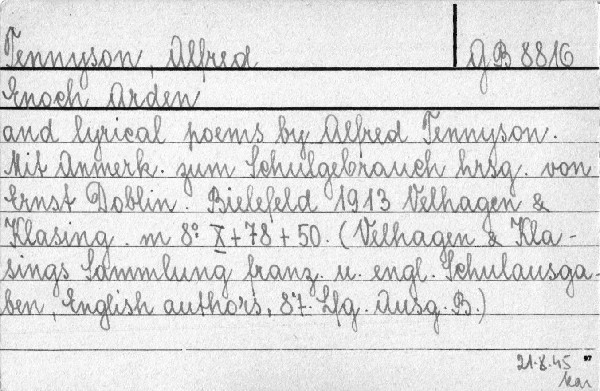 Tennyson, Alfred
G B 8816
Enoch Arden
and lyrical poems by Alfred Tennyson.
Mit Anmerk. zum Schulgebrauch hrsg. von
Ernst Doblin. Bielefeld 1913 Velhagen &
Klasing. m 8° X+78+50. (Velhagen & Kla-
sings Sammlung franz. u. engl. Schulausga-
ben, English authors, 87. Lfg. Ausg. B.)
21.8.45